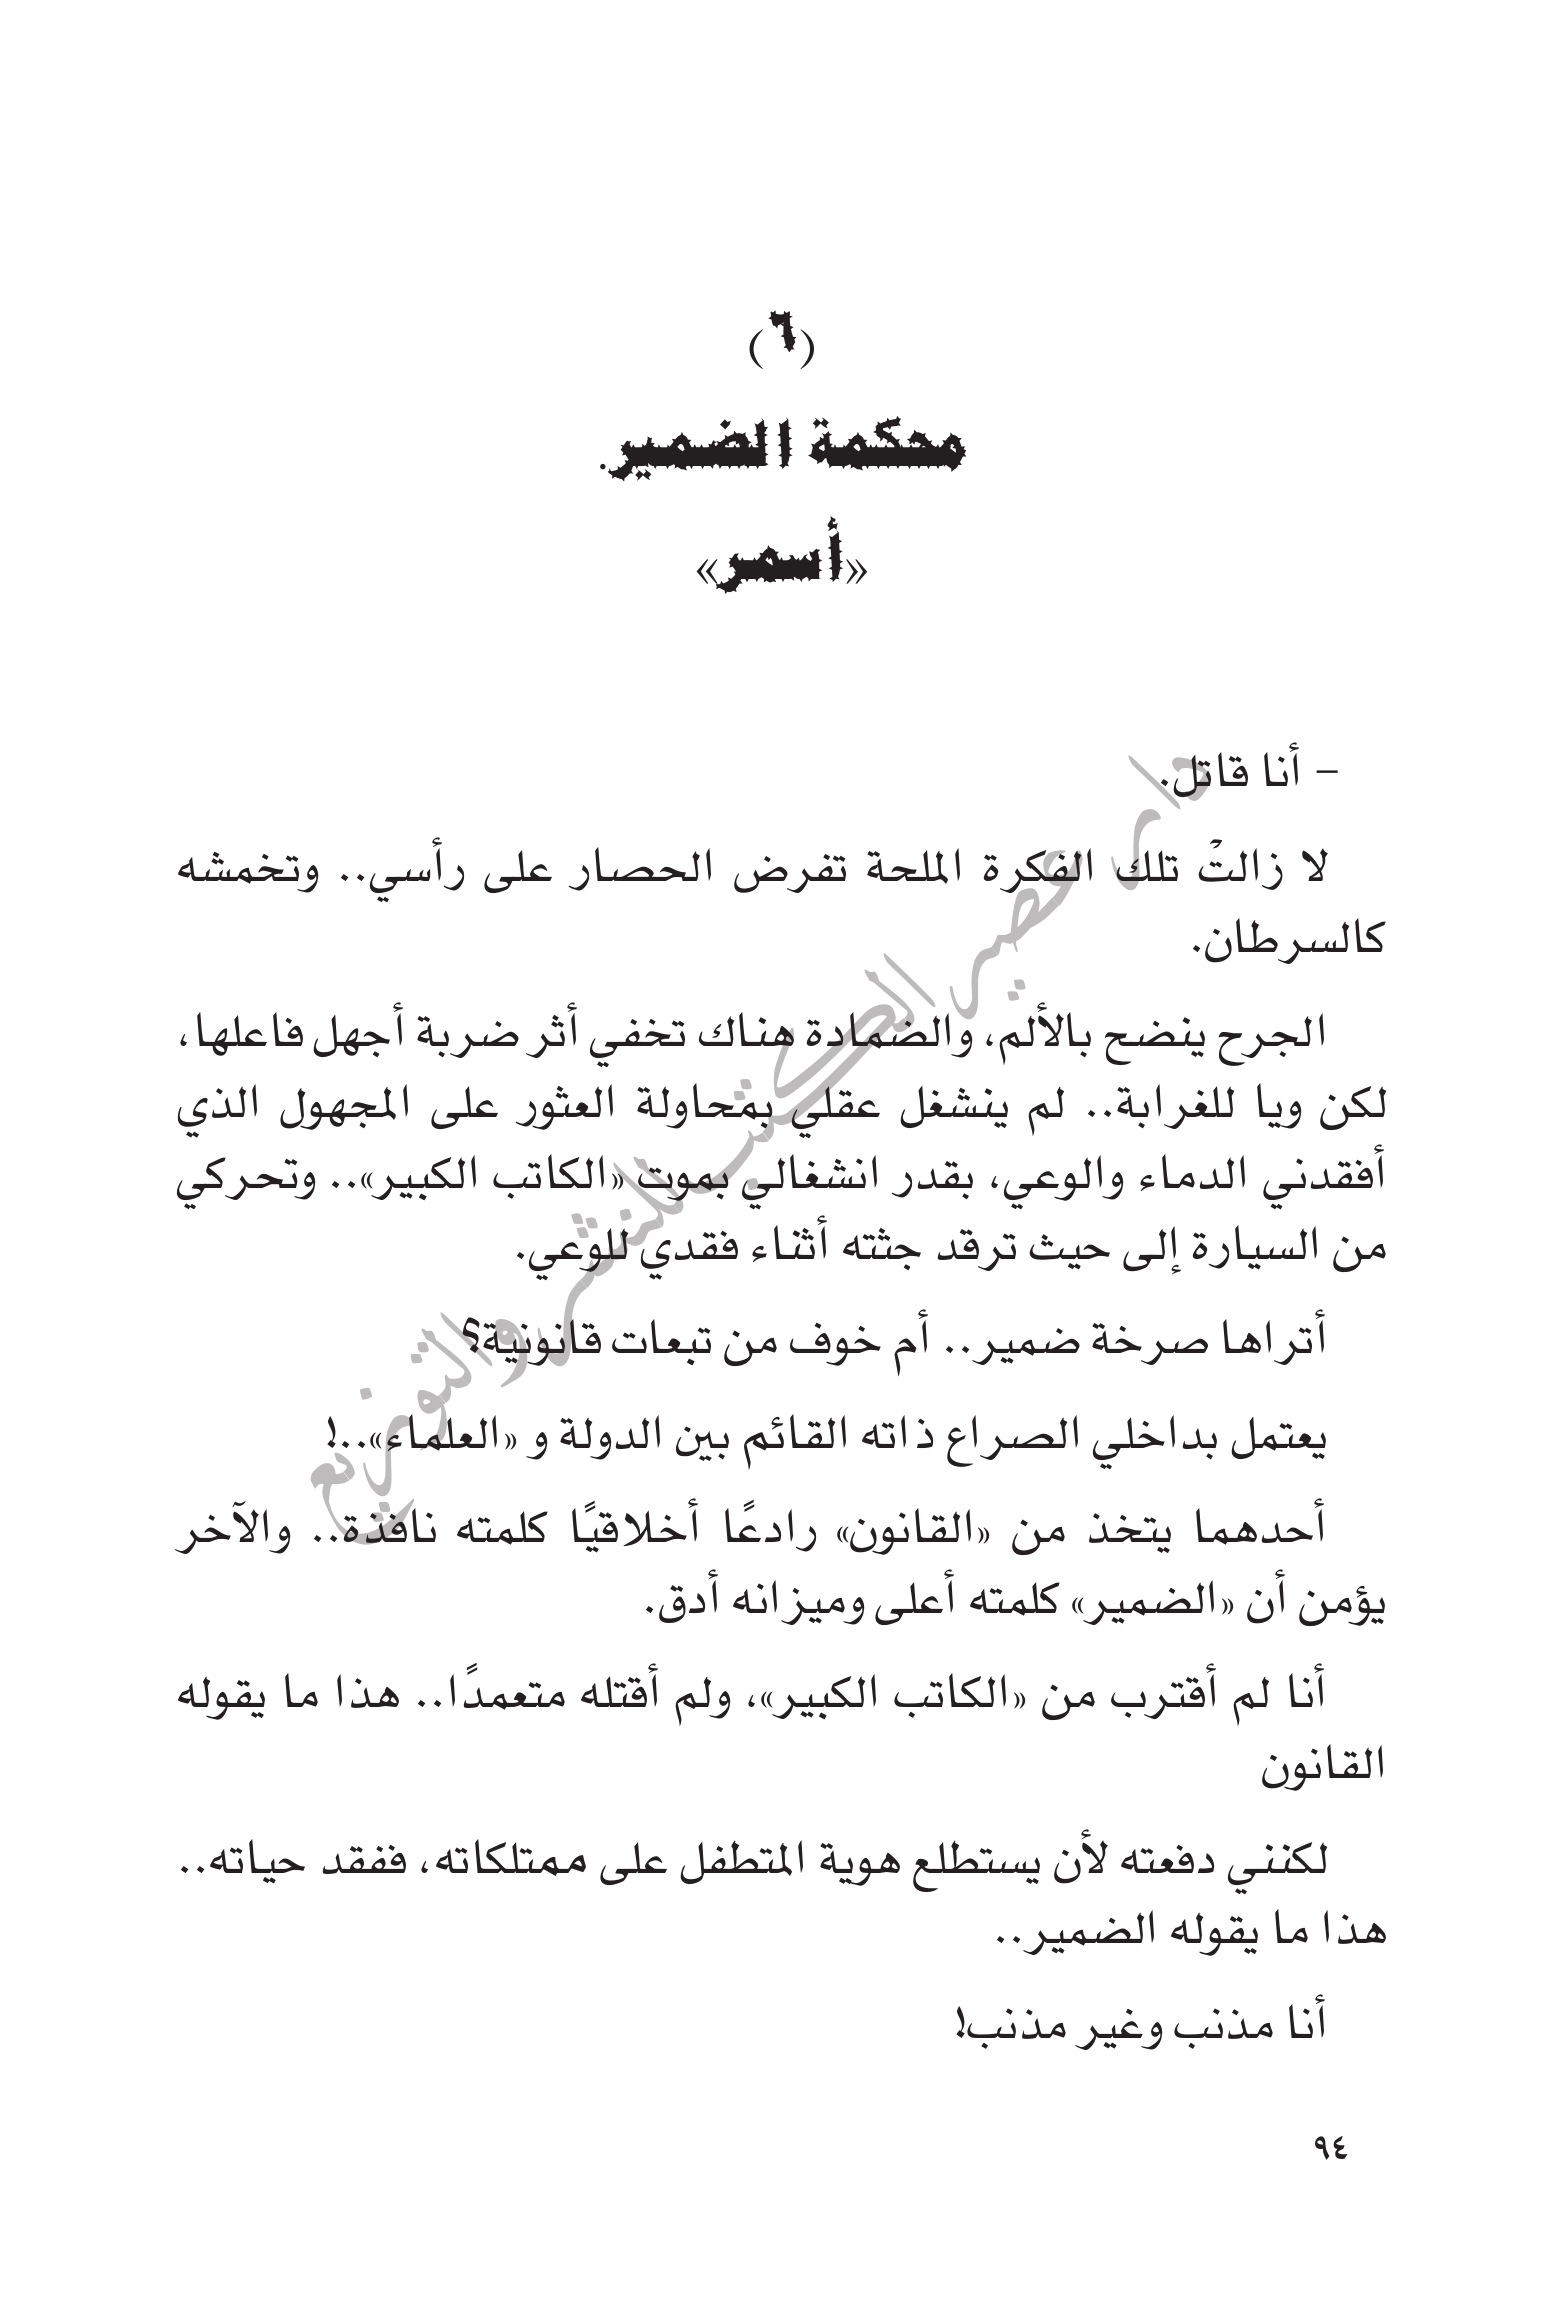 (٦)
محكمة الضمير.
«أسمر»
– أنا قاتل.
لا زالتْ تلك الفكرة الملحة تفرض الحصار على رأسي.. وتخمشه
كالسرطان.
الجرح ينضح بالألم، والضمادة هناك تخفي أثر ضربة أجهل فاعلها،
لكن ويا للغرابة.. لم ينشغل عقلي بمحاولة العثور على المجهول الذي
أفقدني الدماء والوعي، بقدر انشغالي بموت «الكاتب الكبير».. وتحركي
من السيارة إلى حيث ترقد جثته أثناء فقدي للوعي.
أتراها صرخة ضمير.. أم خوف من تبعات قانونية؟
يعتمل بداخلي الصراع ذاته القائم بين الدولة و «العلماء»..!
أحدهما يتخذ من «القانون» رادعًا أخلاقيًا كلمته نافذة.. والآخر
يؤمن أن «الضمير» كلمته أعلى وميزانه أدق.
أنا لم أقترب من «الكاتب الكبير»، ولم أقتله متعمدًا.. هذا ما يقوله
القانون
لكنني دفعته لأن يستطلع هوية المتطفل على ممتلكاته، ففقد حياته..
هذا ما يقوله الضمير..
أنا مذنب وغير مذنب!
٩٤
دار عصير الكتب للنشر والتوزيع